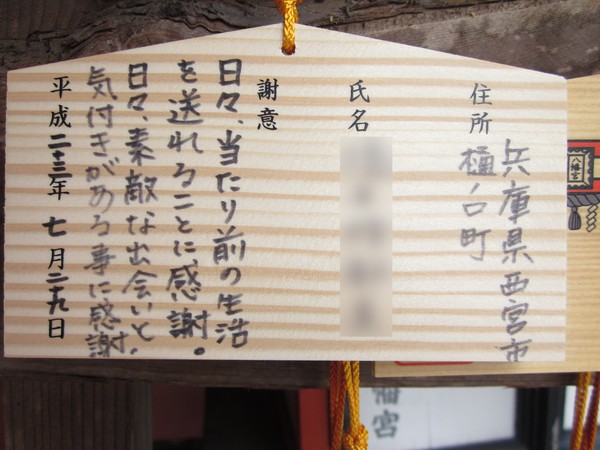 住所
兵庫県西宮市
樋ノ口町
氏名
謝意
日々、当たり前の生活
を送れることに感謝。
日々、素敵な出会いと、
気付きがある事に感謝
平成二十三年 七月二十九日
八幡宮
幡宮